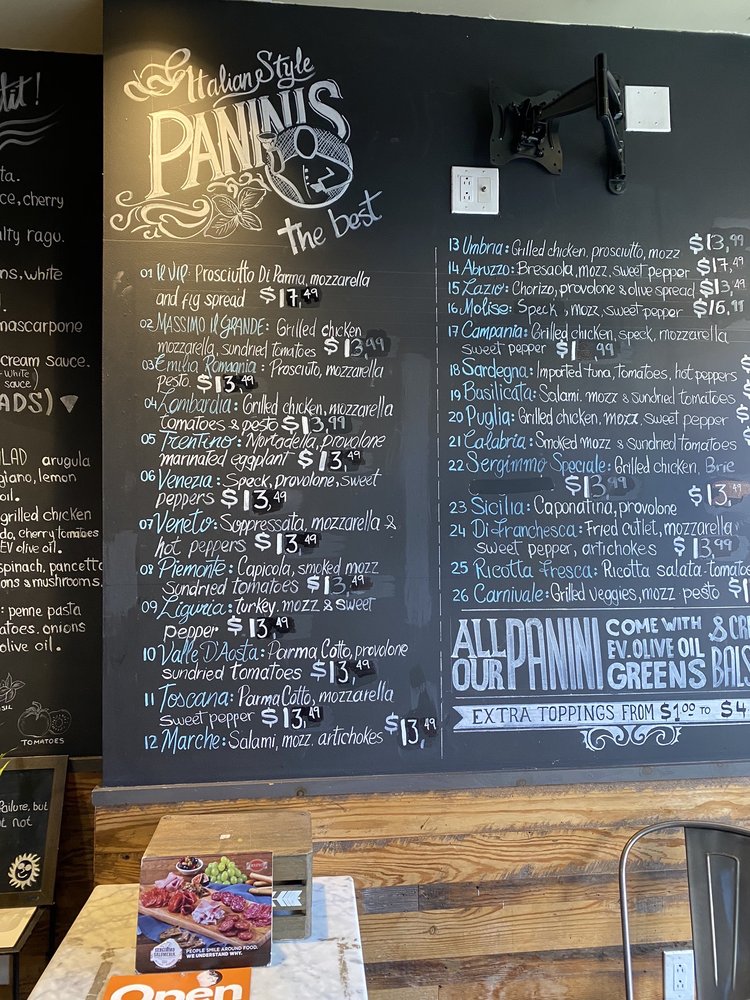 tit!
ta.
ce, cherry
alty ragu.
ns, white
mascarpone
cream sauce.
-white
sauce)
ADS)
LAD arugula
giano, lemon
oil.
grilled chicken
do, cherry tomatoes
EV olive oil.
spinach, pancetta
ons & mushrooms.
: penne pasta
atoes. onions
olive oil.
SIL
TOMATOES
failure, but
t not
Italian Style
PANINIS
the best
01 IL VIP: Prosciutto Di Parma, mozzarella
and fig spread $17,49
02 MASSIMO IL GRANDE: Grilled chicken
mozzarella, sundried tomatoes $13,49
03 Emilia Romania: Prosciuto, mozzarella
pesto. $13,49
04 Lombardia: Grilled chicken, mozzarella
tomatoes & pesto $13,99
05 Trentino: Mortadella, provolone
marinated eggplant $13,49
06 Venezia: Speck, provolone, sweet
peppers $13,49
07 Veneto: Soppressata, mozzarella &
hot peppers $13,49
08 Piemonte: Capicola, smoked mozz
sundried tomatoes $13,49
09 Liguria: turkey, mozz & sweet
pepper $13,49
10 Valle D'Aosta: Parma Cotto, provolone
sundried tomatoes $13,49
11 Toscana: Parma Cotto, mozzarella
sweet pepper $13,49
12 Marche: Salami, mozz. artichokes $13,49
13 Umbria: Grilled chicken, prosciutto, mozz $13,99
14 Abruzzo: Bresaola, mozz, sweet pepper $17,49
15 Lazio: Chorizo, provolone & olive spread $13,49
16 Molise: Speck, mozz, sweet pepper $16,99
17 Campania: Grilled chicken, speck, mozzarella
sweet pepper $1 99
18 Sardegna: Imported tuna, tomatoes, hot peppers $
19 Basilicata: Salami. mozz & sundried tomatoes
20 Puglia: Grilled chicken, mozz, sweet pepper
21 Calabria: Smoked mozz & sundried tomatoes
22 Sergimmo Speciale: Grilled chicken, Brie
$13,99
23 Sicilia: Caponatina, provolone $13,49
24 Di Franchesca: Fried cutlet, mozzarella
sweet pepper, artichokes $13,99
25 Ricotta Fresca: Ricotta salata tomatoe
26 Carnivale: Grilled veggies, mozz pesto $1
ALL OUR PANINI COME WITH
EV. OLIVE OIL
GREENS & CR
BALS
EXTRA TOPPINGS FROM $1.00 TO $4
PEOPLE SMILE AROUND FOOD.
WE UNDERSTAND WHY.
Open